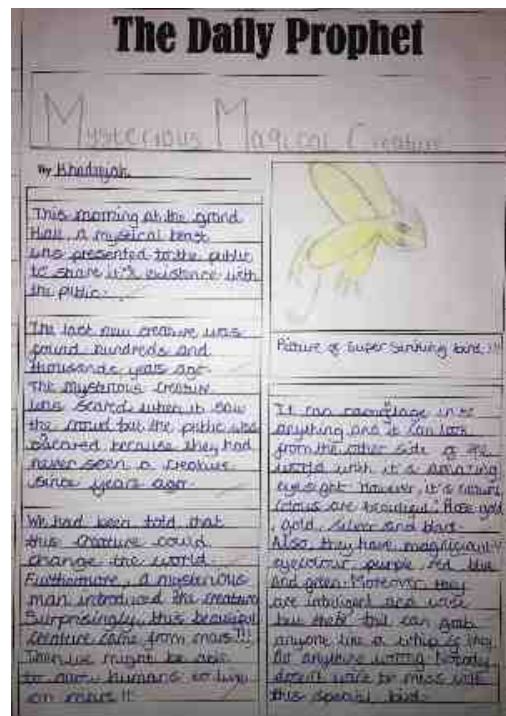 The Daily Prophet
Mysterious Magical Creature
By Khadijah
This morning at the grand
Hall, a mystical beast
was presented to the public
to share it's existence with
the public.
The last new creature was
found hundreds and
thousands years ago.
The mysterious creature
was scared when it saw
the crowd but the public was
scared because they had
never seen a creature
since years ago.
We had been told that
this creature could
change the world.
Furthermore, a mysterious
man introduced the creature
Surprisingly, this beautiful
creature came from mars!!!
Then we might be able
to allow humans to live
on mars!!
Picture of super striking bird!!!
It can camouflage into
anything and it can look
from the other side of the
world with it's amazing
eyesight. However, it's
colous are beautiful. Rose gold
, gold, silver and black.
Also, they have
eyecolour purple red blue
and green. Moreover, they
are and wise
but tail can grab
anyone like a whip if they
do anything wrong. Nobody
want to mess with
this bird.